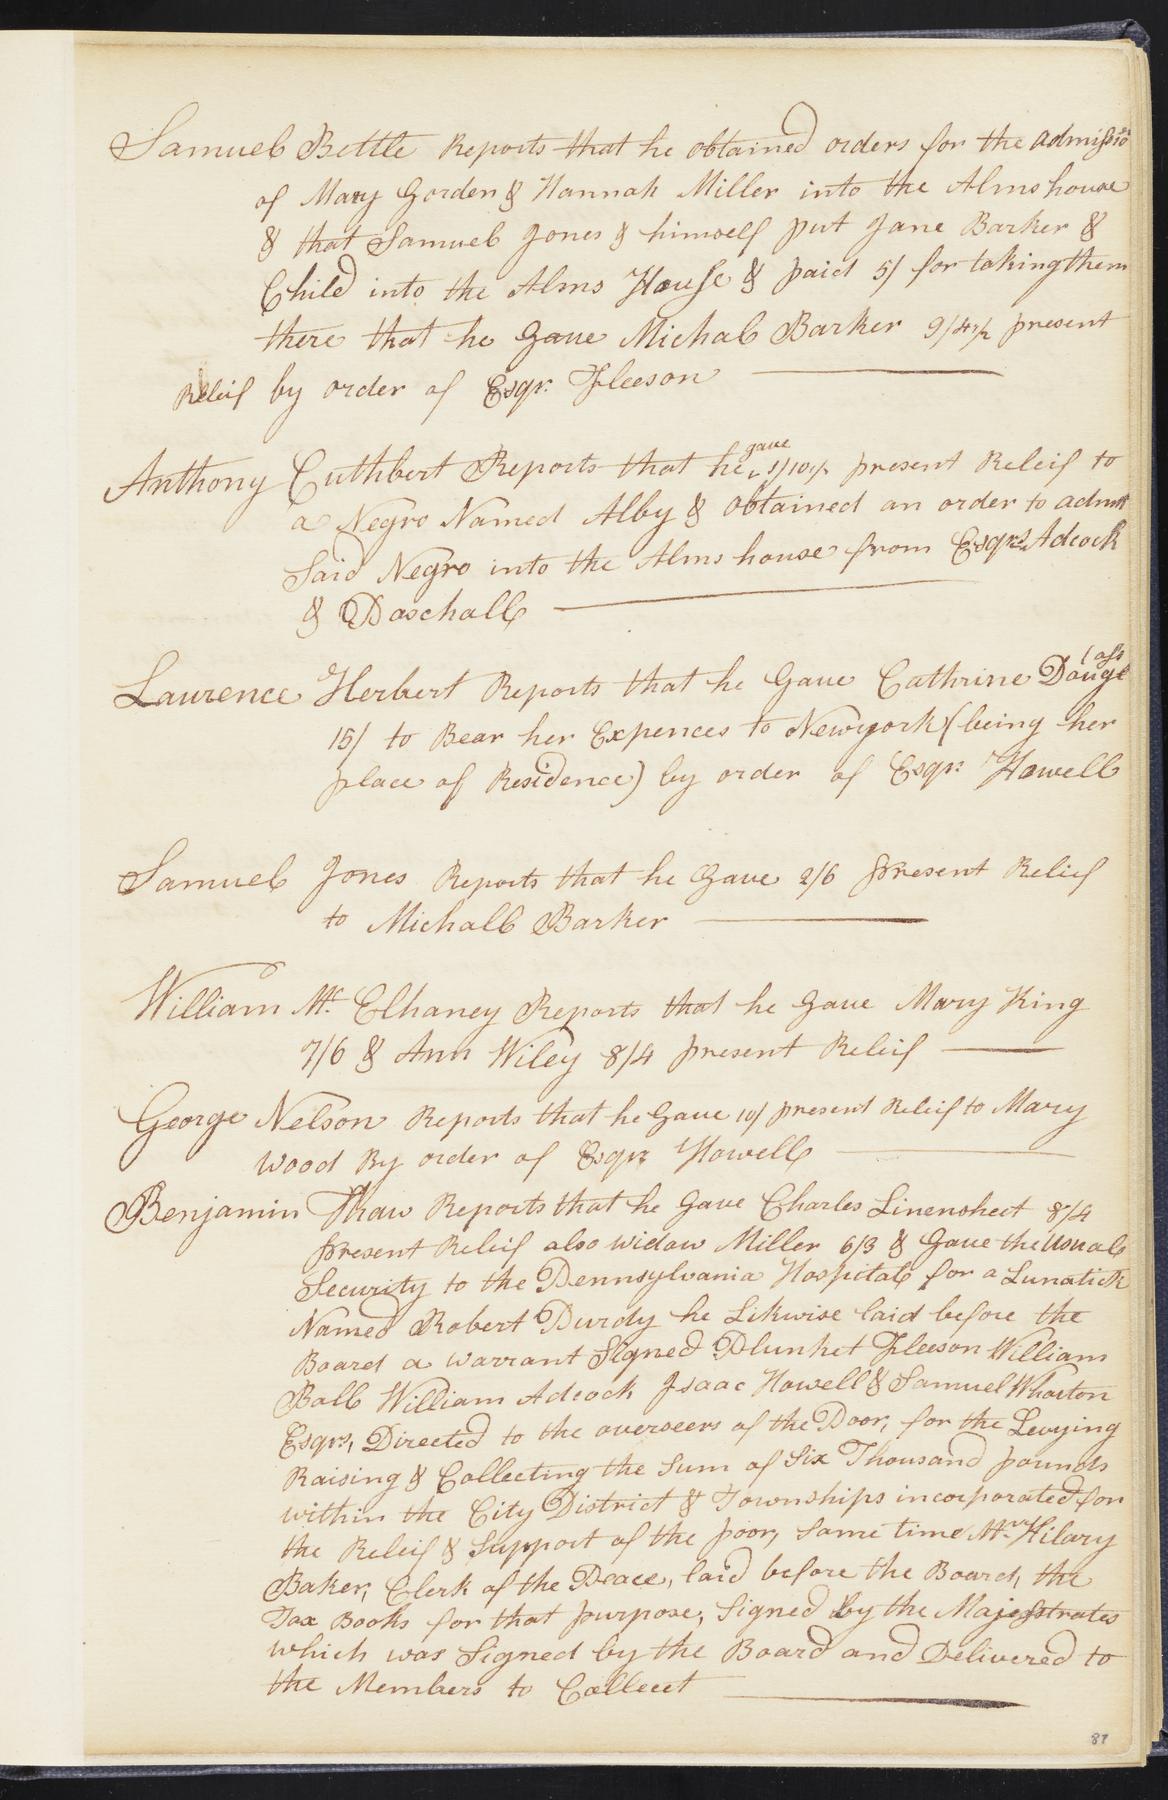 Samuel Bettle Reports that he obtained orders for the admission
of Mary Gorden & Hannah Miller into the Alms house
& that Samuel Jones & himself put Jane Barker &
Child into the Alms House & paid 5/ for taking them
there that he Gave Michal Barker 9/4½ present
Releif by order of Esqr. Fleeson
Anthony Cuthbert Reports that he gave 1/10½ present Releif to
a Negro Named Alby & obtained an order to admit
Said Negro into the Alms house from Esqrs. Adcock
& Paschall
Laurence Herbert Reports that he Gave Cathrine Douglass
15/ to Bear her Expences to Newyork (being her
place of Residence) by order of Esqr. Howell
Samuel Jones Reports that he Gave 2/6 present Relief
to Michall Barker
William Mc. Elhaney Reports that he Gave Mary King
7/6 & Ann Wiley 8/4 present Releif
George Nelson Reports that he Gave 10/ present Releif to Mary
Wood By order of Esqr Howell
Benjamin Thaw Reports that he Gave Charles Linensheet 8/4
present Releif also widow Miller 6/3 & Gave the Usual
Security to the Pennsylvania Hospital for a Lunatick
Named Robert Purdy he Likwise laid before the
Board a warrant Signed Plunket Fleeson William
Ball William Adcock Isaac Howell & Samuel Wharton
Esqrs, Directed to the overseers of the Poor, for the Levying
Raising & Collecting the Sum of Six Thousand pounds
within the City District & Townships incorporated for
the Releif & Support of the poor, Same time Mr. Hilary
Baker, Clerk of the Peace, laid before the Board, the
Tax Books for that purpose, Signed by the Majestrates
which was Signed by the Board and Delivered to
the Members to Collect
87